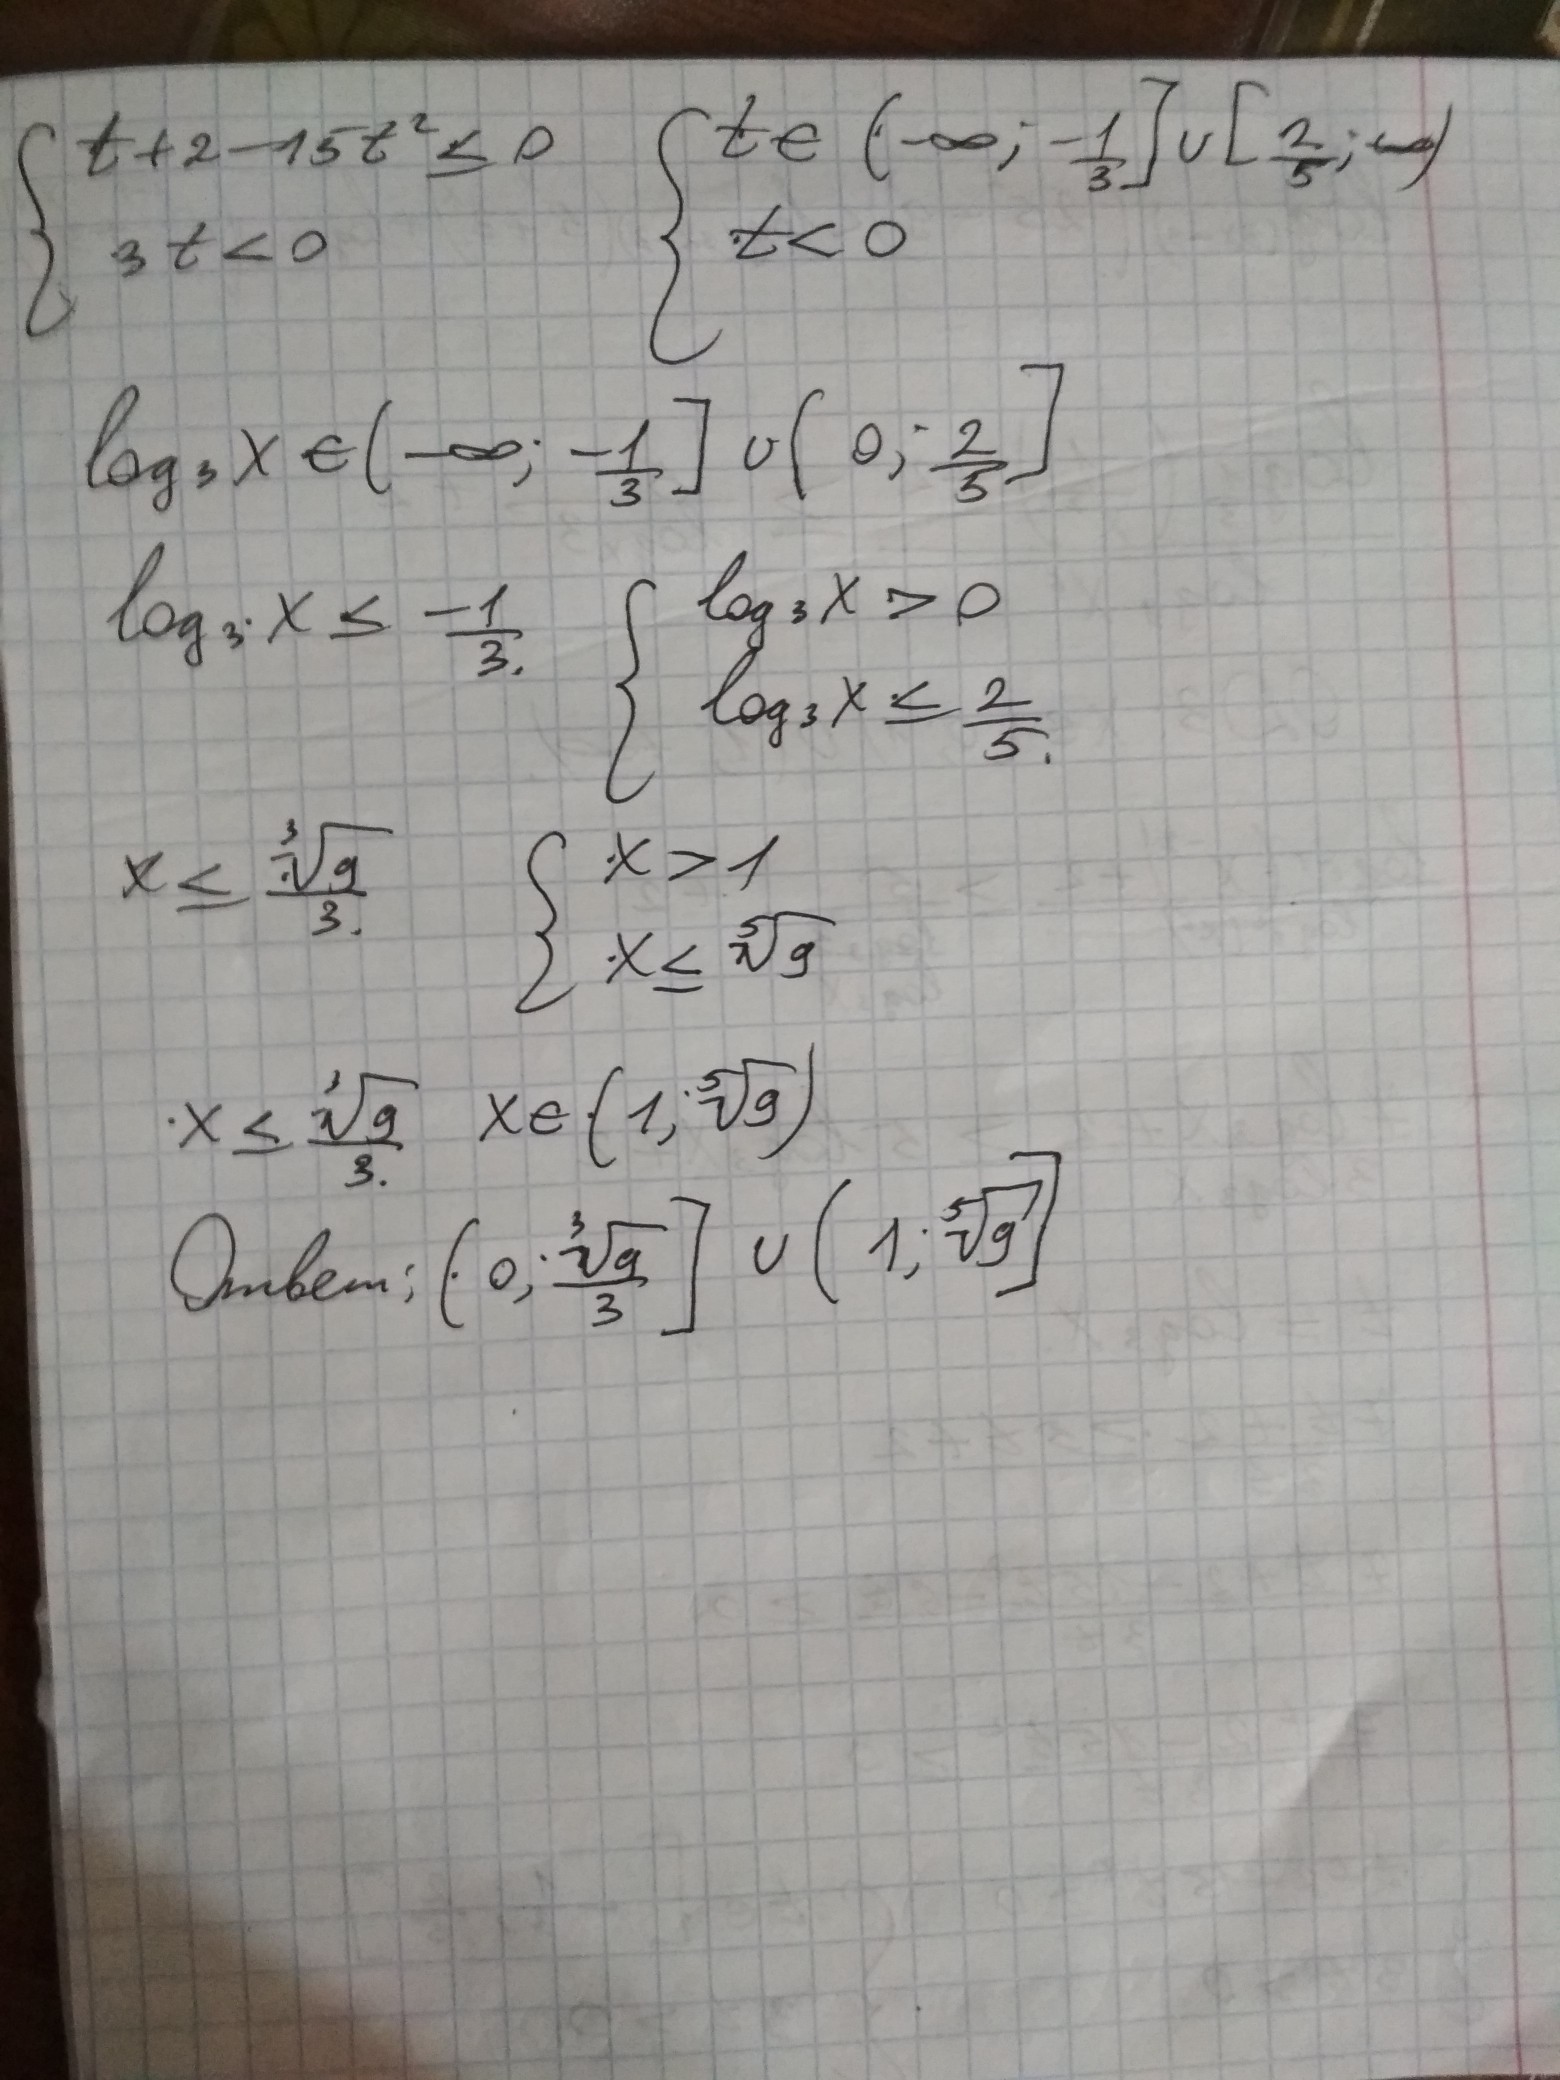 { t+2-15t² ≤ 0 { t ∈ (-∞; -1/3] ∪ [2/5; ∞)
3t < 0 t < 0
log₃ x ∈ (-∞; -1/3] ∪ (0; 2/5]
log₃ x ≤ -1/3. { log₃ x > 0
log₃ x ≤ 2/5.
x ≤ ∛9/3. { x > 1
x ≤ ⁵√9
x ≤ ∛9/3. x ∈ (1; ⁵√9)
Ответ: (0; ∛9/3] ∪ (1; ⁵√9]